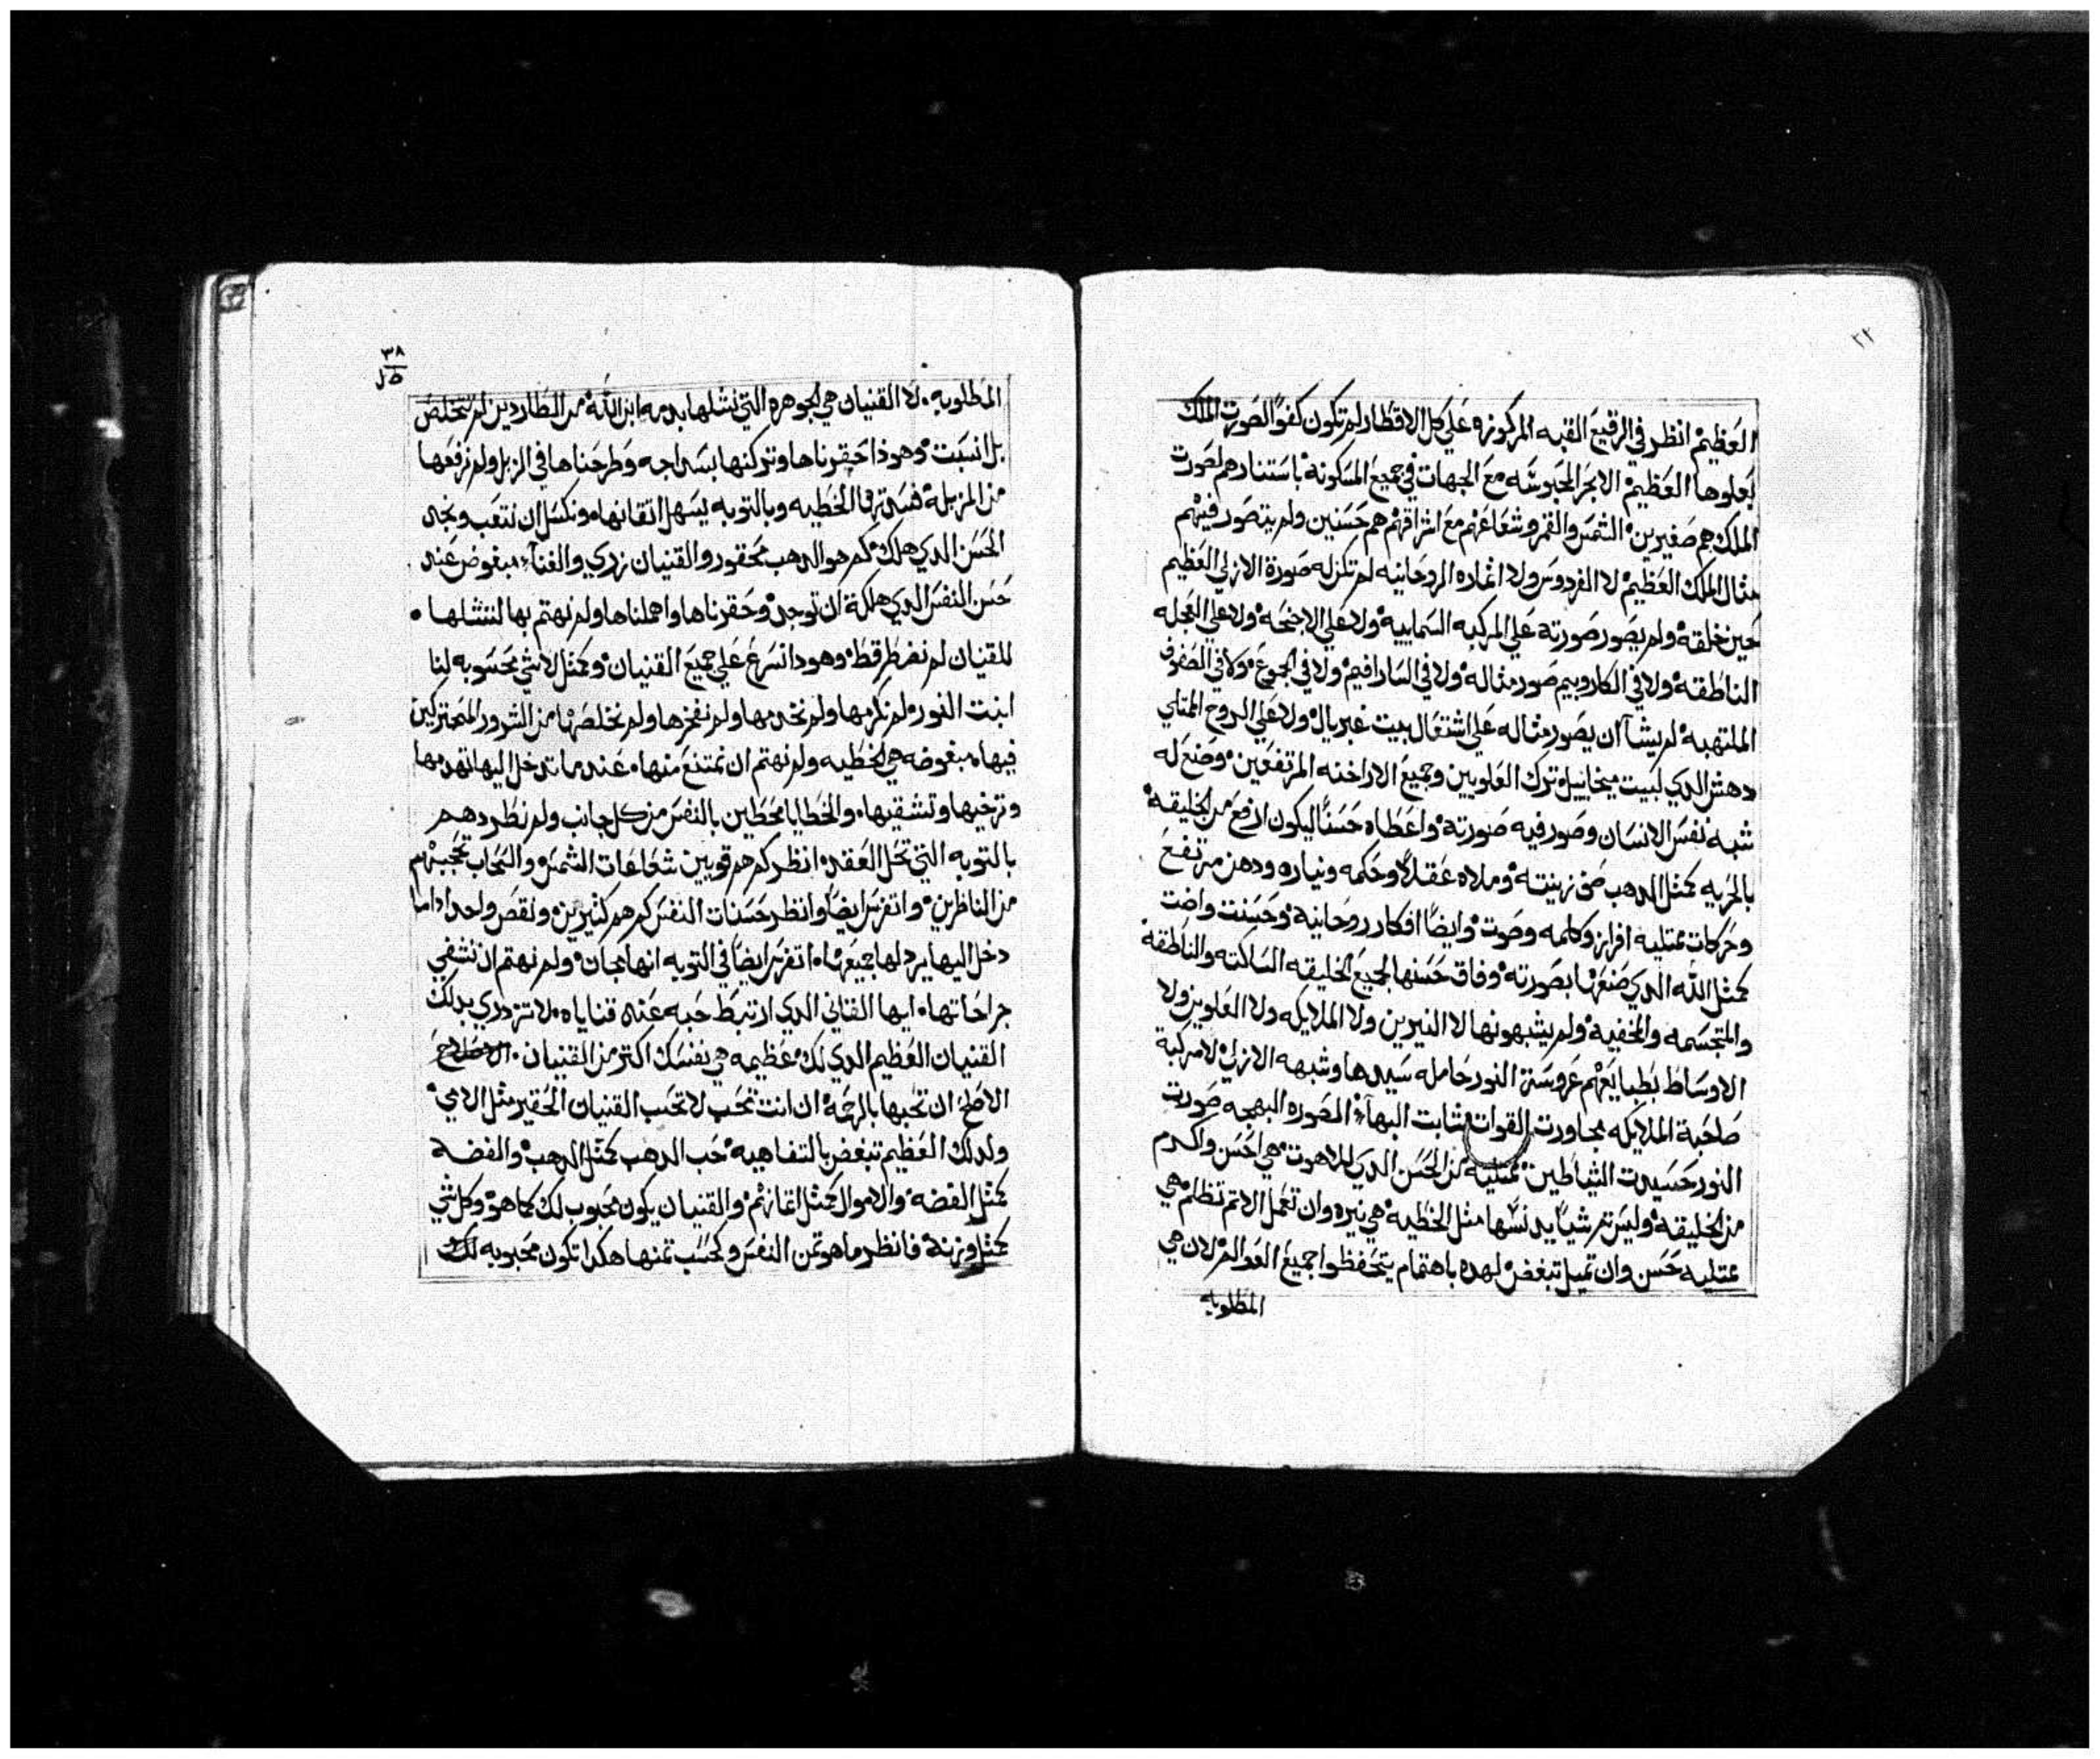 ٢٢
العظيم انظر في الرقيع القبه المركوزه علي كل الاقطار لم تكون كفوا لصورت الملك
بعلوها العظيم الابحر المحبوسه مع الجهات في جميع المسكونه باستنارهم لصورت
الملك هم صغيرين الشمس والقمر وشعاعهم مع اشراقهم هم حسنين ولم يتصور فيهم
مثال الملك العظيم لا الفردوس ولا اثماره الروحانيه لم تكن له صورة الازلي العظيم
حين خلقه ولم يصور صورته علي المركبه السماييه ولا علي الاجنحه ولا علي العجله
الناطقه ولا في الكاروبيم صور مثاله ولا في السارافيم ولا في الجموع ولا في الصفوف
الملتهبه لم يشآ ان يصور مثاله علي اشتعال بيت غبريال ولا علي الروح الممتلي
دهش الدي لبيت ميخاييل ترك العلويين وجميع الاراخنه المرتفعين وصنع له
شبه نفس الانسان وصور فيه صورته واعطاه حسنًا ليكون ارفع من الخليقه
بالحريه كمثل الدهب في زينته وملاه عقلًا وحكمه ونياره ودهن مرتفع
وحركات ممتليه افراز وكلمه وصوت وايضًا افكار روحانيه وحسنت واضت
كمثل الله الدي صنعها بصورته وفاق حسنها لجميع الخليقه الساكته والناطقه
والمتجسمه والخفيه ولم يشبهونها لا النيرين ولا الملايكه ولا العلويين ولا
الاوساط بطبايعهم عروسة النور حامله سيدها وشبهه الازلي لا مركبة
صاحبة الملايكه مجاورت القوات شابت البهآء المصوره البهجه صورت
النور حسيدت الشياطين ممتليه من الحسن الدي للاهوت هي احسن واكرم
من الخليقه وليس ثم شيًا يدنسها مثل الخطيه هي نيره وان تعمل الاثم تظلم هي
ممتليه حسن وان تميل تبغض لهده باهتمام يتحفظوا جميع العوالم لان هي
المطلوبه
٣٨
المطلوبه لا القنيان هي الجوهره التي نشلها بدمه ابن الله من الطاردين لم تتخلص
بل انسبت وهودا احقرناها وتركنها بسداجه وطرحناها في الزبل ولم نرفعها
من المزبله الخطيه وبالتوبه يسهل اتقانها ونكسل ان نتعب ونجد
الحسن الدي هلك كم هو الدهب محقور والقنيان زدي والغنآء مبغوض عند
حسن النفس الدي هلكة ان توجد وحقرناها واهملناها ولم نهتم بها لننشلها
للقنيان لم نفرط قط وهودا نسرع علي جميع القنيان وكمثل لاشي محسوبه لنا
ابنت النور لم نكرمها ولم نخدمها ولم نفخرها ولم نخلصها من الشرور المتحركين
فيها مبغوضه هي الخطيه ولم نهتم ان نمتنع منها عند ما تدخل اليها تهدمها
وترخيها وتشقيها والخطايا محطين بالنفس من كل جانب ولم نطردهم
بالتوبه التي تحل العقد انظر كم هم قويين شعاعات الشمس والسحاب تحجبهم
من الناظرين واتفرس ايضًا وانظر حسنات النفس كم هم كثيرين ونقص واحد اداما
دخل اليها يردلها جميعها اتفرس ايضًا في التوبه انها مجان ولم نهتم ان نشفي
جراحاتها ايها القاني الدي ارتبط حبه عند قناياه لا تزدري بدلك
القنيان العظيم الدي لك عظيمه هي نفسك اكتر من القنيان
الاصلح ان تحبها بالرحمه ان انت تحب لا تحب القنيان الحقير مثل الامي
ولدلك العظيم تبغض بالتفاهيه حب الدهب كمثل الدهب والفضه
كمثل الفضه والاموال كمثل اثمانهم والقنيان يكون محبوب لك كما هو وكل شي
كمثل وزنه فانظر ما هو تمن النفس وكحسب تمنها هكدا تكون محبوبه لك